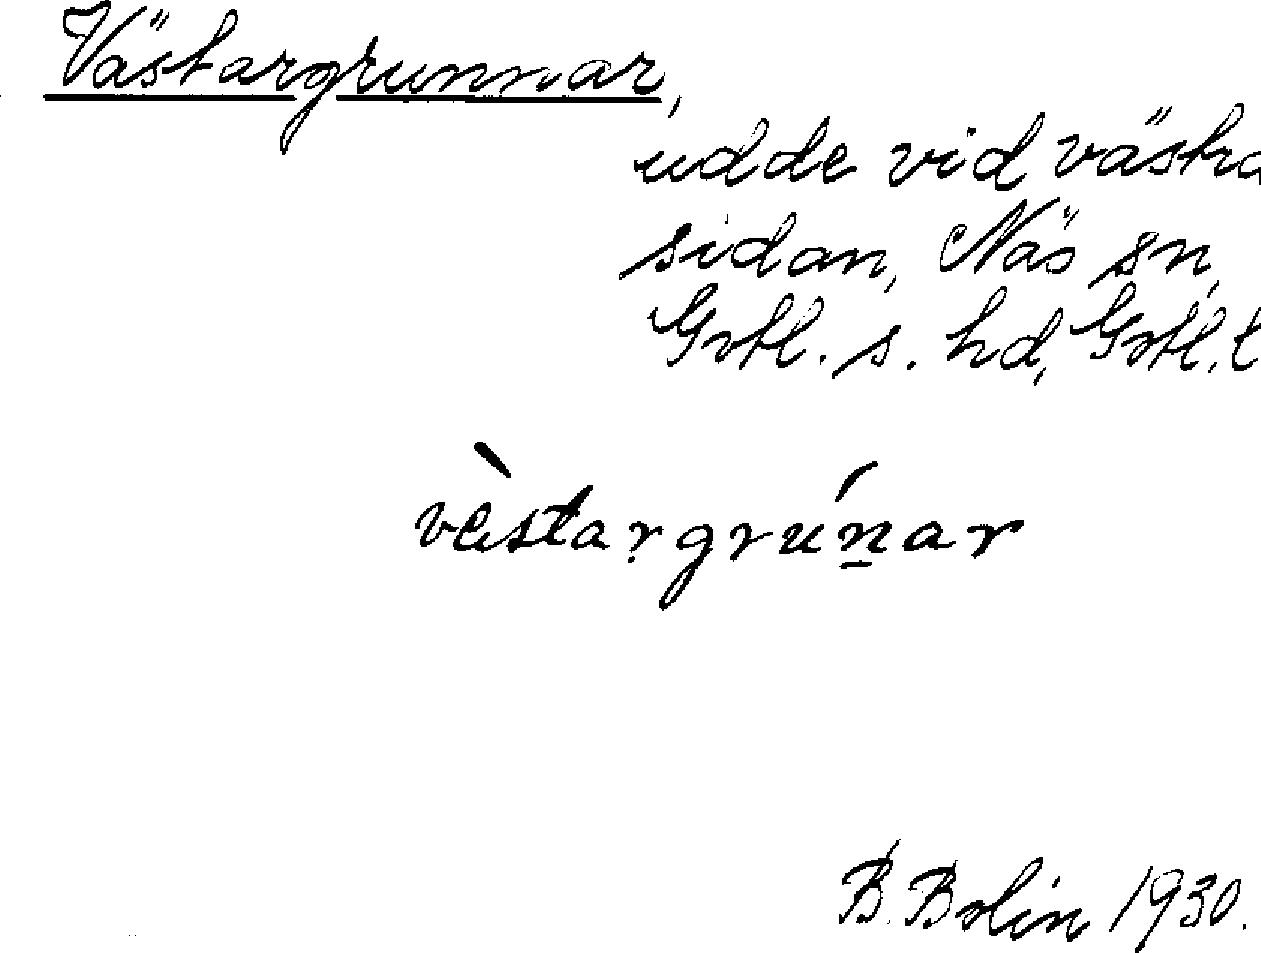 Västargrunnar,
udde vid västra
sidan, Näs sn,
Gotl. s. hd, Gotl. l
vèstargrúnar
B. Bolin 1930.